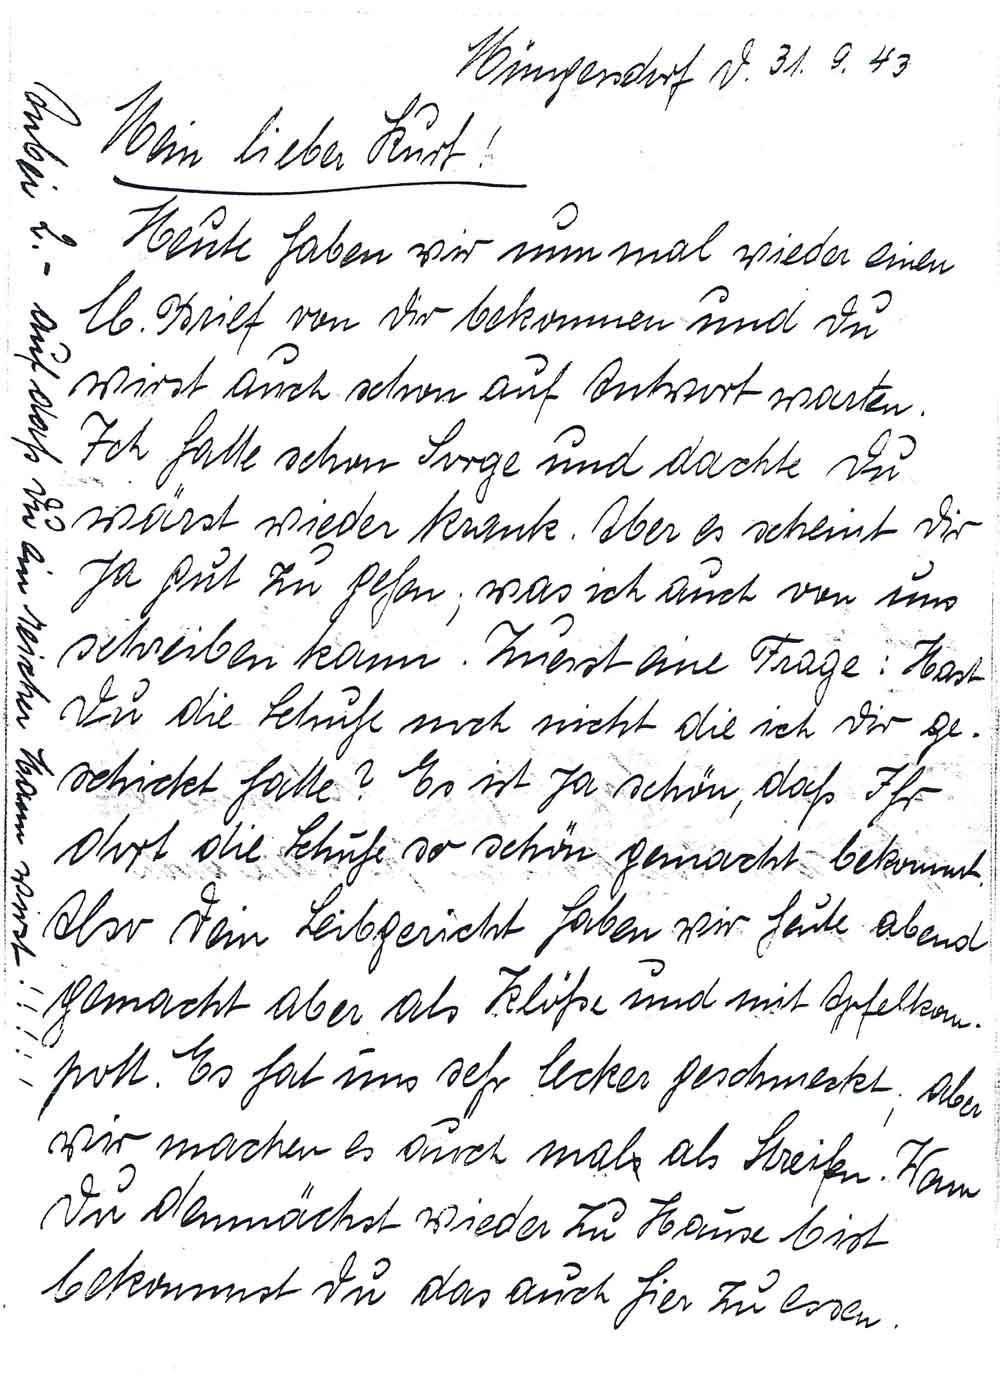 Müngersdorf d. 31. 9. 43
Mein lieber Kurt!
Heute haben wir nun mal wieder einen
lb. Brief von Dir bekommen und Du
wirst auch schon auf Antwort warten.
Ich hatte schon Sorge und dachte Du
wärst wieder krank. Aber es scheint Dir
ja gut zu gehen, was ich auch von uns
schreiben kann. Zuerst eine Frage: Hast
Du die Schuhe noch nicht die ich Dir ge-
schickt hatte? Es ist ja schön, daß Ihr
dort die Schuhe so schön gemacht bekommt.
Also Dein Leibgericht haben wir heute abend
gemacht aber als Klöße und mit Apfelkom-
pott. Es hat uns sehr lecker geschmeckt, aber
wir machen es auch mal als Streifen. Wenn
Du demnächst wieder zu Hause bist
bekommst Du das auch hier zu essen.
Anbei 2.- auf daß Du ein reicher Mann wirst!!!!!